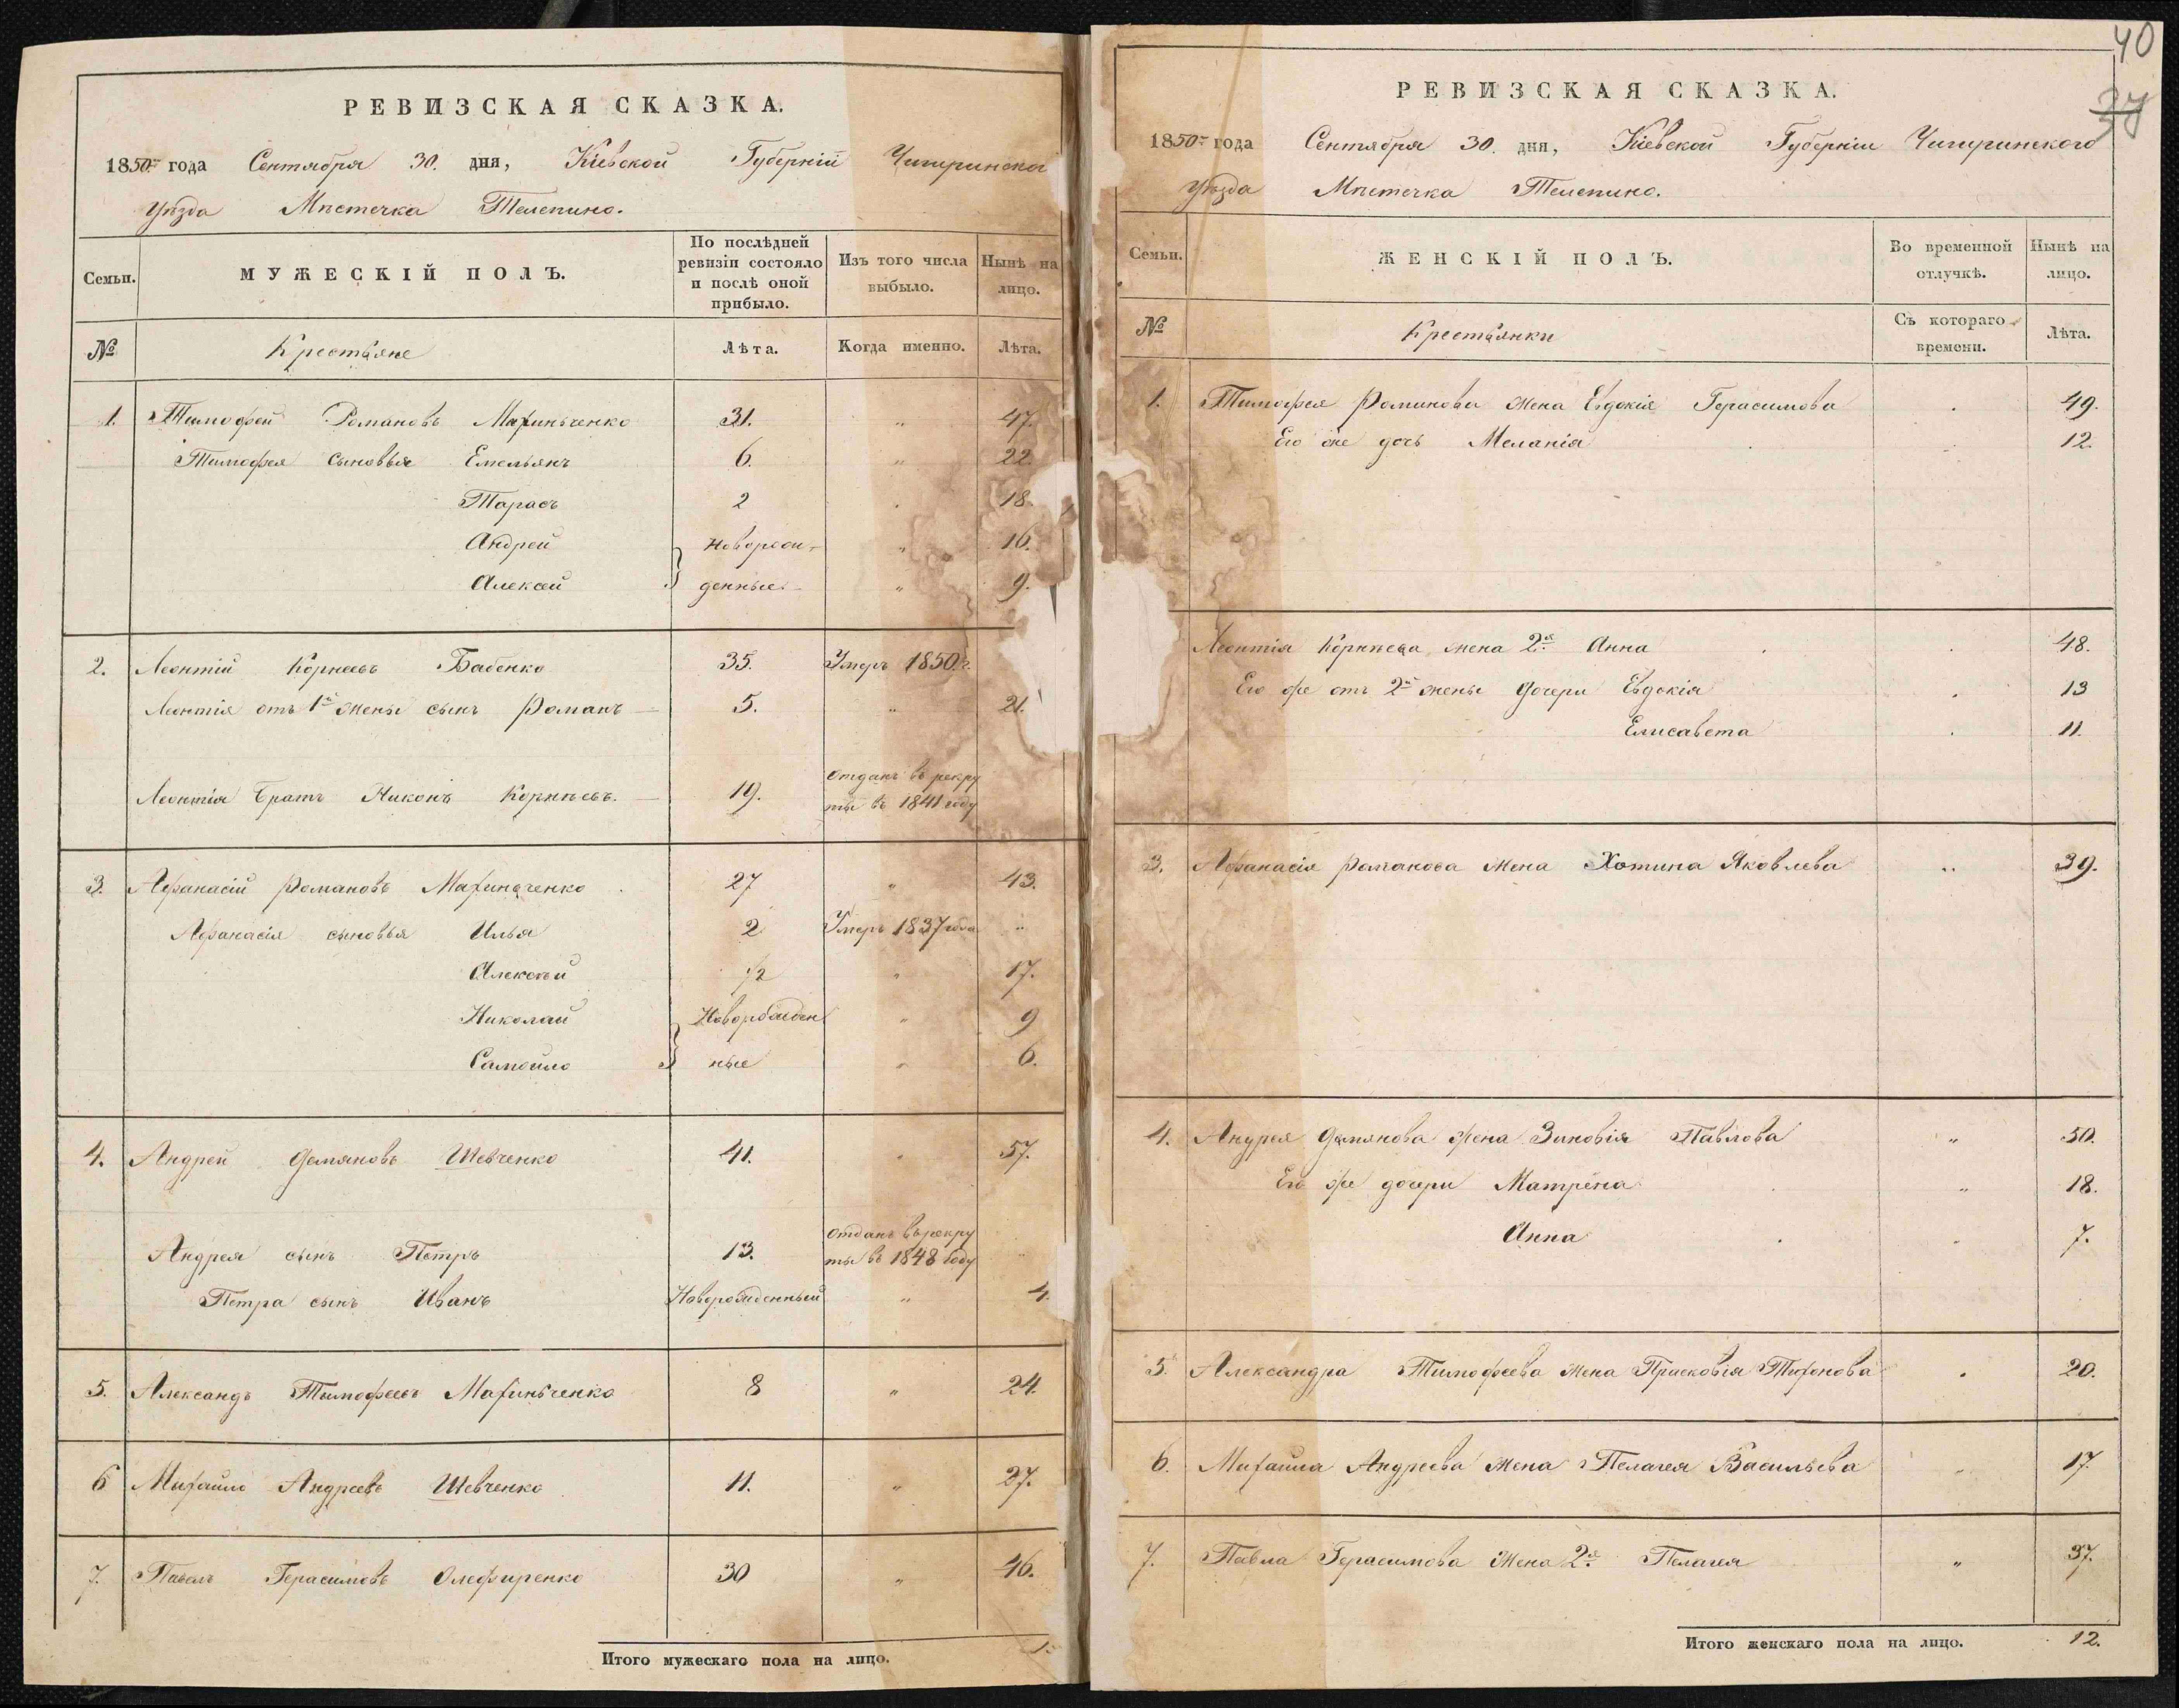 РЕВИЗСКАЯ СКАЗКА.
1850го года Сентября 30. дня, Кіевской Губерніи Чигиринска
уѣзда Мѣстечка Телепино.
Семьи.
МУЖЕСКІЙ ПОЛЪ.
По послѣдней ревизіи состояло и послѣ оной прибыло.
Изъ того числа выбыло.
Нынѣ на лицо.
№
Крестьяне
Лѣта.
Когда именно.
Лѣта.
1. Тимофей Романовъ Махиньченко 31. „ 47.
Тимофея сыновья Емельянъ 6. „ 22
Тарасъ 2 „ 18.
Андрей Новорож- „ 16.
Алексей денные „ 9.
2. Леонтій Корнеевъ Бабенко 35. Умеръ 1850.г.
Леонтія отъ 1й жены сынъ Романъ 5. „ 21.
Леонтія братъ Никонъ Корнѣевъ. 19. Отданъ въ рекру
ты въ 1841 году
3. Афанасій Романовъ Махиньченко 27 „ 43.
Афанасія сыновья Илья 2 Умеръ 1837 года „
Алексѣй 1/2 „ 17.
Николай Новорожден „ 9
Самойло ные „ 6.
4. Андрей Демяновъ Шевченко 41. „ 57.
Андрея сынъ Петръ 13. Отданъ въ рекру
ты въ 1848 году „
Петра сынъ Иванъ Новорожденный „ 4.
5. Александъ Тимофеевъ Махиньченко 8 „ 24.
6 Михайло Андреевъ Шевченко 11. „ 27.
7. Павелъ Герасимовъ Олефиренко 30 „ 46.
Итого мужескаго пола на лицо.
40
37
РЕВИЗСКАЯ СКАЗКА.
1850го года Сентября 30. дня, Кіевской Губерніи Чигиринского
уѣзда Мѣстечка Телепино.
Семьи.
ЖЕНСКІЙ ПОЛЪ.
Во временной отлучкѣ.
Нынѣ на лицо.
№
Крестьянки
Съ котораго времени.
Лѣта.
1. Тимофея Романова жена Евдокія Герасимова 49.
Его же дочь Меланія 12.
Леонтія Корнѣева жена 2я Анна 48.
Его же отъ 2й жены дочери Евдокія 13
Елисавета 11.
3. Афанасія Романова жена Хотина Яковлева „ 39.
4. Андрея Демянова жена Зиновія Павлова „ 50.
Его же дочери Матрёна „ 18.
Анна „ 7.
5. Александра Тимофеева жена Прасковія Тифонова 20.
6. Михаила Андреева жена Пелагея Васильева „ 17.
7. Павла Герасимова жена 2я Пелагея „ 37.
Итого женскаго пола на лицо. 12.